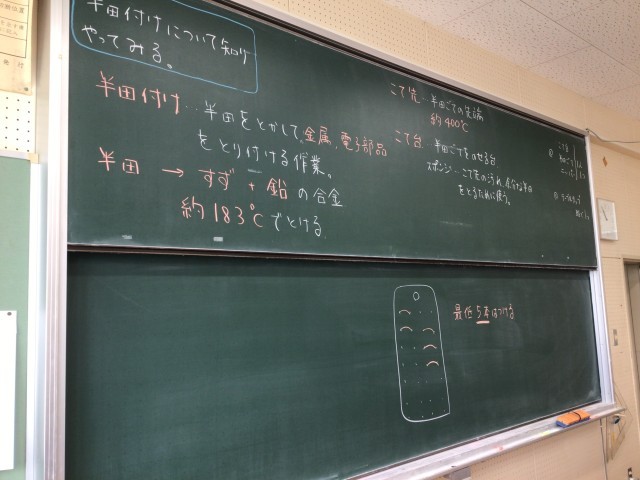 半田付けについて知り
やってみる。
半田付け…半田をとかして、金属、電子部品
をとり付ける作業。
半田 → すず + 鉛 の合金
約183℃でとける
こて先…半田ごての先端
約400℃
こて台…半田ごてをのせる台
スポンジ…こて先の汚れ、余分な半田
をとるために使う。
最低5本はつける